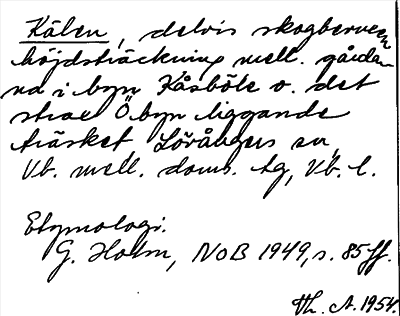 Kälen, delvis skogbevuxen
höjdsträckning mell. gårdar-
na i byn Kåsböle o. det
strax Ö byn liggande
träsket Lövånger sn,
Vb. mell. doms. tg, Vb. l.
Etymologi.
G. Holm, NoB 1949, s. 85 ff.
Th. A. 1954.